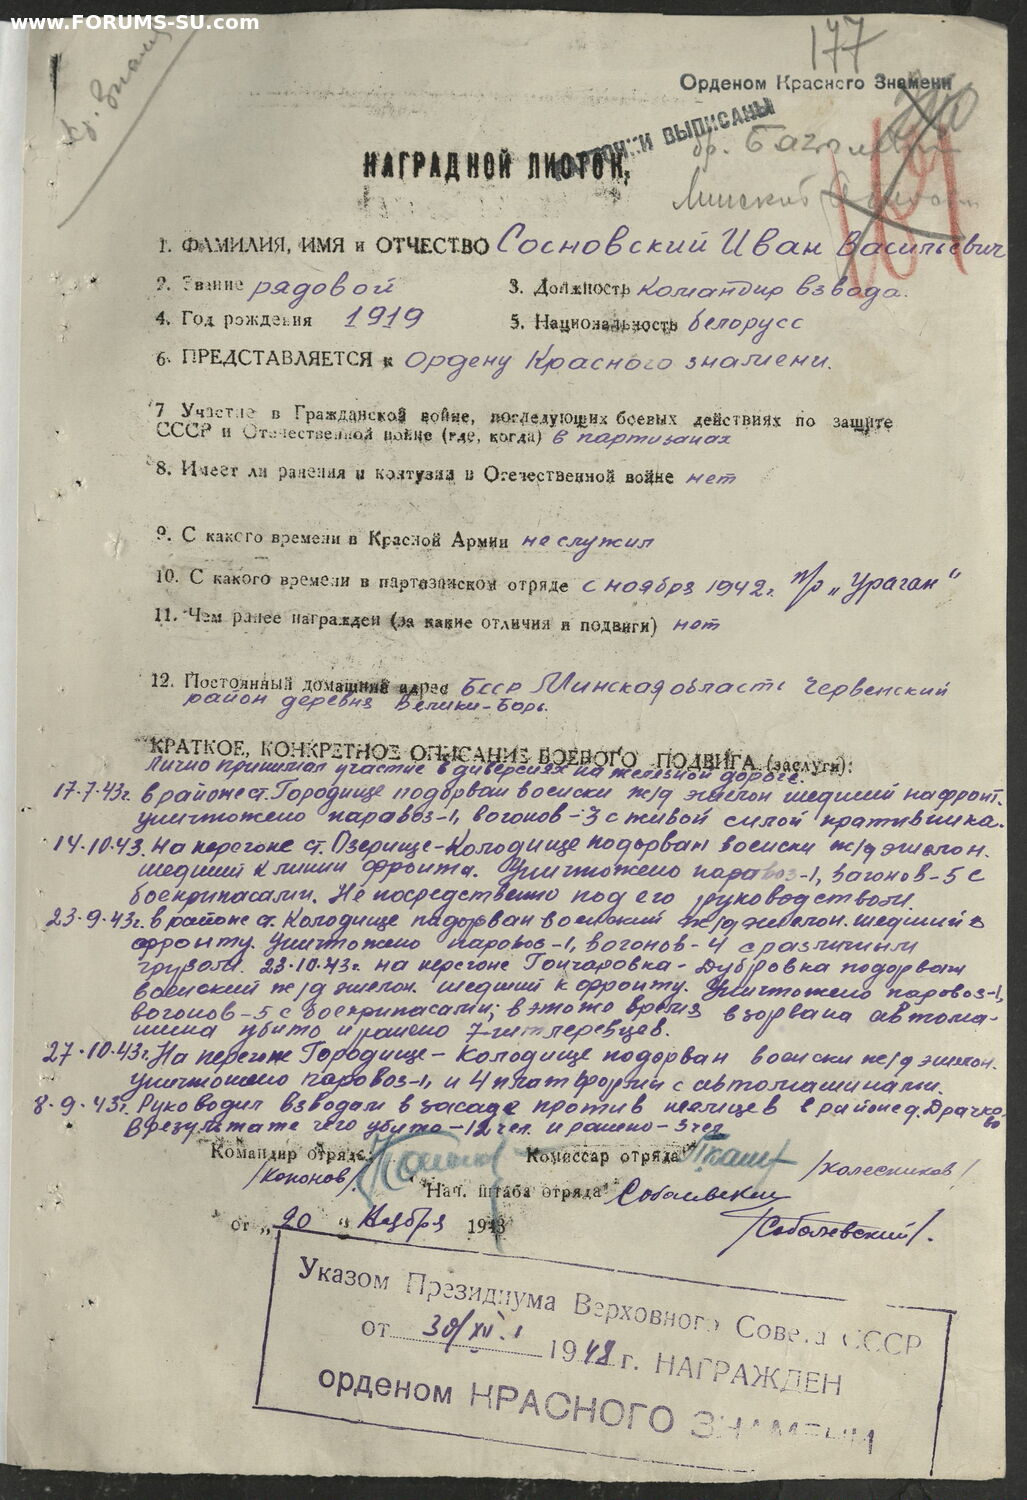 www.FORUMS-SU.com
177
Кр. Знамя
Орденом Красного Знамени
ВЫПИСАНЫ
бр.
НАГРАДНОЙ ЛИСТОК,
1. ФАМИЛИЯ, ИМЯ и ОТЧЕСТВО Сосновский Иван Васильевич
2. Звание рядовой 3. Должность командир взвода.
4. Год рождения 1919 5. Национальность белорусс
6. ПРЕДСТАВЛЯЕТСЯ к ордену Красного знамени.
7 Участие в Гражданской войне, последующих боевых действиях по защите
СССР и Отечественной войне (где, когда) в партизанах
8. Имеет ли ранения и контузии в Отечественной войне нет
9. С какого времени в Красной Армии не служил
10. С какого времени в партазанском отряде с ноября 1942г. п/о „Ураган"
11. Чем ранее награжден (за какие отличия и подвиги) нет
12. Постоянный домашний адрес БССР Минская область Червенский
район деревня Велики-Борь.
КРАТКОЕ, КОНКРЕТНОЕ ОПИСАНИЕ БОЕВОГО ПОДВИГА (заслуги):
Лично принимал участие в диверсиях на железной дороге.
17.7.43г. в районе ст. Городище подорван воиски ж/д эшелон шедший на фронт.
уничтожено паравоз-1, вогонов-3 с живой силой пративника.
14.10.43. на перегоне ст. Озерище-Колодище подорван воиски ж/д эшелон.
шедший к линии фронта. Уничтожено паравоз-1, вагонов-5 с
боеприпасами. Непосредственно под его руководством.
23.9.43г. в районе ст. Колодище падорван воиский ж/д эшелон. шедший к
фронту. Уничтожено паровоз-1, вогонов-4 с различным
грузом. 23.10.43г. на перегоне Гончаровка-Дубровка подорван
воиский ж/д эшелон шедший к фронту. Уничтожено паровоз-1,
вогонов-5 с боеприпасами; в этоже время взорвана автома-
шина убито и ранено 7-гитлеревцев.
27.10.43г. На перегоне Городище-Колодище подорван воиски ж/д эшелон.
Уничтожено паровоз-1, и 4 платформы с автомашинами.
8.9.43г. Руководил взводам в засаде против немцев в районе д. Драчко-
во
В результате чего убито-12 чел. и ранено-3 чел
Командир отряда: Комиссар отряда
/Кононов/ /Колесников/
Нач. штаба отряда Соболевский
/Соболевский/.
от „20" Ноября 1943
Указом Президиума Верховного Совета СССР
от 30/XII 1948 г. НАГРАЖДЕН
орденом КРАСНОГО ЗНАМЕНИ